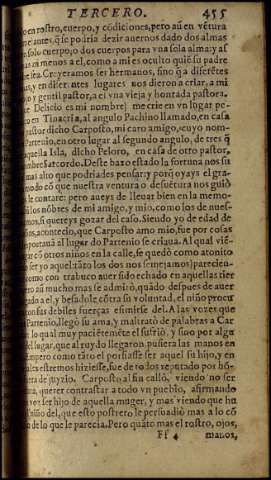 TERCERO. 455
en rostro, cuerpo, y cōdiciones, pero aū en vētura
me antes, q̃ se podria dezir auernos dado dos almas
solo cuerpo, o dos cuerpos para vna sola alma: y as
menos a el, como a mi es oculto quiē su padre
sea. Creyeramos ser hermanos, sino q̃ a diferētes
y en diferentes lugares nos dieron a criar, a mi
y gentil pastor, a el vna vieja y hontada pastora,
Delicio es mi nombre) me crie en vn lugar pe
en Tinacria, al angulo Pachino llamado, en casa
pastor dicho Carposto, mi caro amigo, cuyo nom-
Partenio, en otro lugar al segundo angulo, de tres q̃
aquella Isla, dicho Peloro, en casa de otro pastor,
nombre Sarcordo. Deste baxo estado la fortuna nos su
mas alto que podriades pensar: y porq̃ oyays el gra-
modo cō que nuestra ventura o desuētura nos guiò
le contare: pero aueys de lleuar bien en la memo-
los nōbres de mi amigo, y mio, como los de nues-
si quereys gozar del caso. Siendo yo de edad de
años, acontecio, que Carposto amo mio, fue por cosas
importauā al lugar do Partenio se criaua. Al qual viē-
cō otros niños en la calle, se quedò como atonito
ser yo aquel: tāto los dos nos semejamos) parecien-
con trabuco auer sido echado en aquellas tier
aū mucho mas se admirò, quādo despues de auer
a el, y besadole cōtra su voluntad, el niño procur
sus debiles fuerças esimirse del. A las vozes que
Partenio, llegò su ama, y maltratò de palabras a Car
lo qual muy paciētemēte el sufriò, y sino por algu
del lugar, que al ruydo llegaron, pusiera las manos en
Empero como tāto el porfiasse ser aquel su hijo, y en
tales estremos hiziesse, fue de todos reputado por hō-
fuera de juyzio. Carposto al fin callò, viendo no ser
querer contrastar a todo vn pueblo, afirmando
ser hijo de aquella muger, y mas viendo que no
niño del, que esto postrero le persuadiò mas a lo cō
de lo que le parecia. Pero quāto mas el rostro, ojos,
Ff 4 manos,